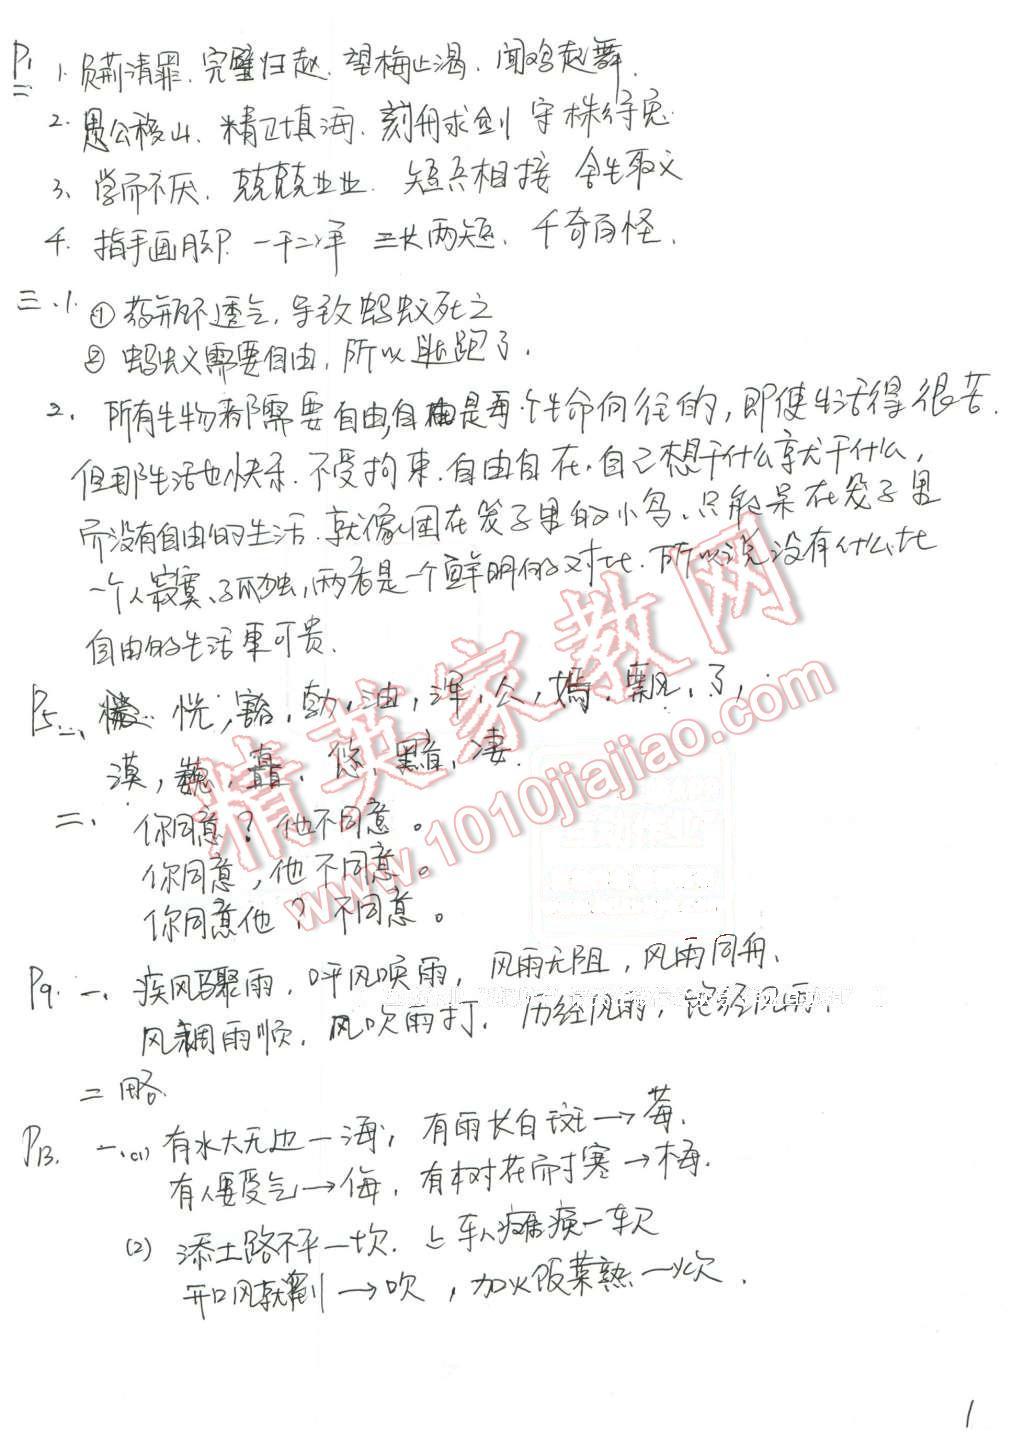 P1
二 1. 负荆请罪. 完璧归赵. 望梅止渴. 闻鸡起舞.
2. 愚公移山. 精卫填海. 刻舟求剑 守株待兔.
3、学而不厌. 兢兢业业. 短兵相接 舍生取义
4. 指手画脚. 一干二净 三长两短. 千奇百怪.
三.1. ①药瓶不透气, 导致蚂蚁死亡
② 蚂蚁需要自由, 所以逃跑了.
2. 所有生物都需要自由,自由是每个生命向往的, 即使生活得很苦.
但那生活也快乐. 不受拘束. 自由自在. 自己想干什么就干什么,
而没有自由的生活. 就像困在笼子里的小鸟. 只能呆在笼子里
一个人寂寞、孤独, 两者是一个鲜明的对比. 所以说没有什么比
自由的生活更可贵.
P5 一、 恍, 豁, 勃, 油, 浑, 人, 嫣, 飘, 了,
漠, 巍, 矗, 悠, 黯, 凄.
二、你同意? 他不同意。
你同意, 他不同意。
你同意他? 不同意。
P9. 一、疾风骤雨, 呼风唤雨, 风雨无阻, 风雨同舟.
风调雨顺. 风吹雨打. 历经风雨, 饱经风雨.
二 略.
P13. 一.(1) 有水大无边—海; 有雨长白斑→莓.
有人要受气→侮, 有树花而耐寒→梅.
(2) 添土路不平—坎. 上车人瘫痪—软
开口风就刮→吹, 加火饭菜熟—炊.
精英家教网
www.1010jiajiao.com
1